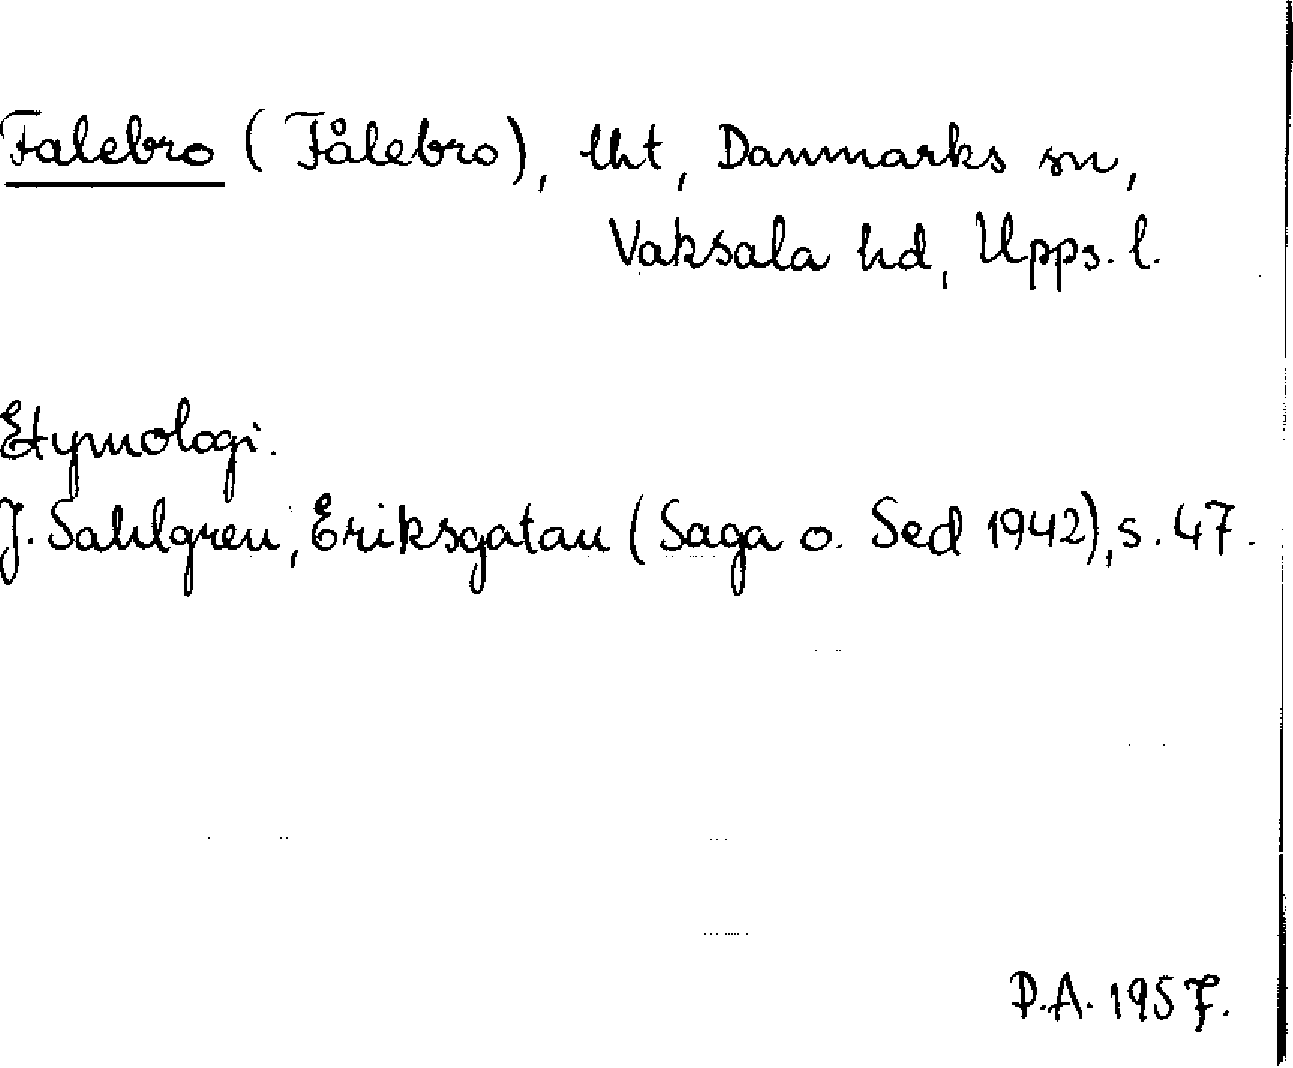 Falebro (Fålebro), lht, Danmarks sn,
Vaksala hd, Upps. l.
Etymologi.
J. Sahlgren, Eriksgatan (Saga o. Sed 1942), s. 47.
P.A. 1957.